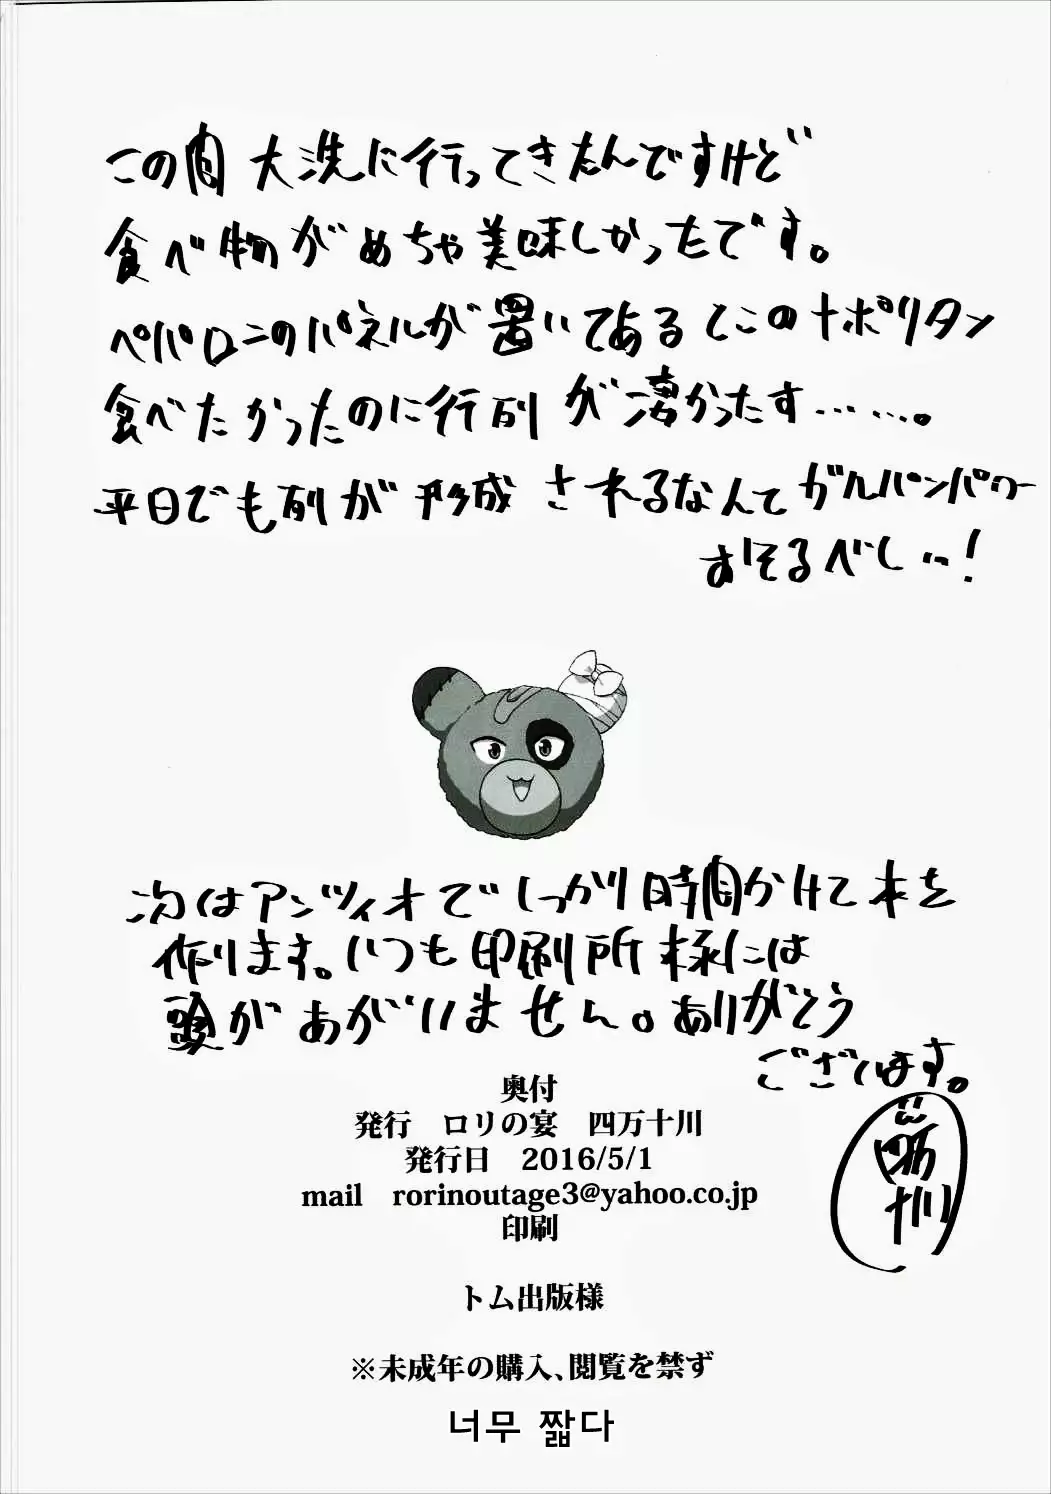 この間大洗に行ってきたんですけど
食べ物がめちゃ美味しかったです。
ペパロニのパネルが置いてあるとこのナポリタン
食べたかったのに行列が凄かったす……。
平日でも列が形成されるなんてガルパンパワー
おそるべし…!
次はアンツィオでしっかり時間かけて本を
作ります。いつも印刷所様には
頭があがりません。ありがとう
ございます。
四万十川
奥付
発行 ロリの宴 四万十川
発行日 2016/5/1
mail rorinoutage3@yahoo.co.jp
印刷
トム出版様
※未成年の購入、閲覧を禁ず
너무 짧다